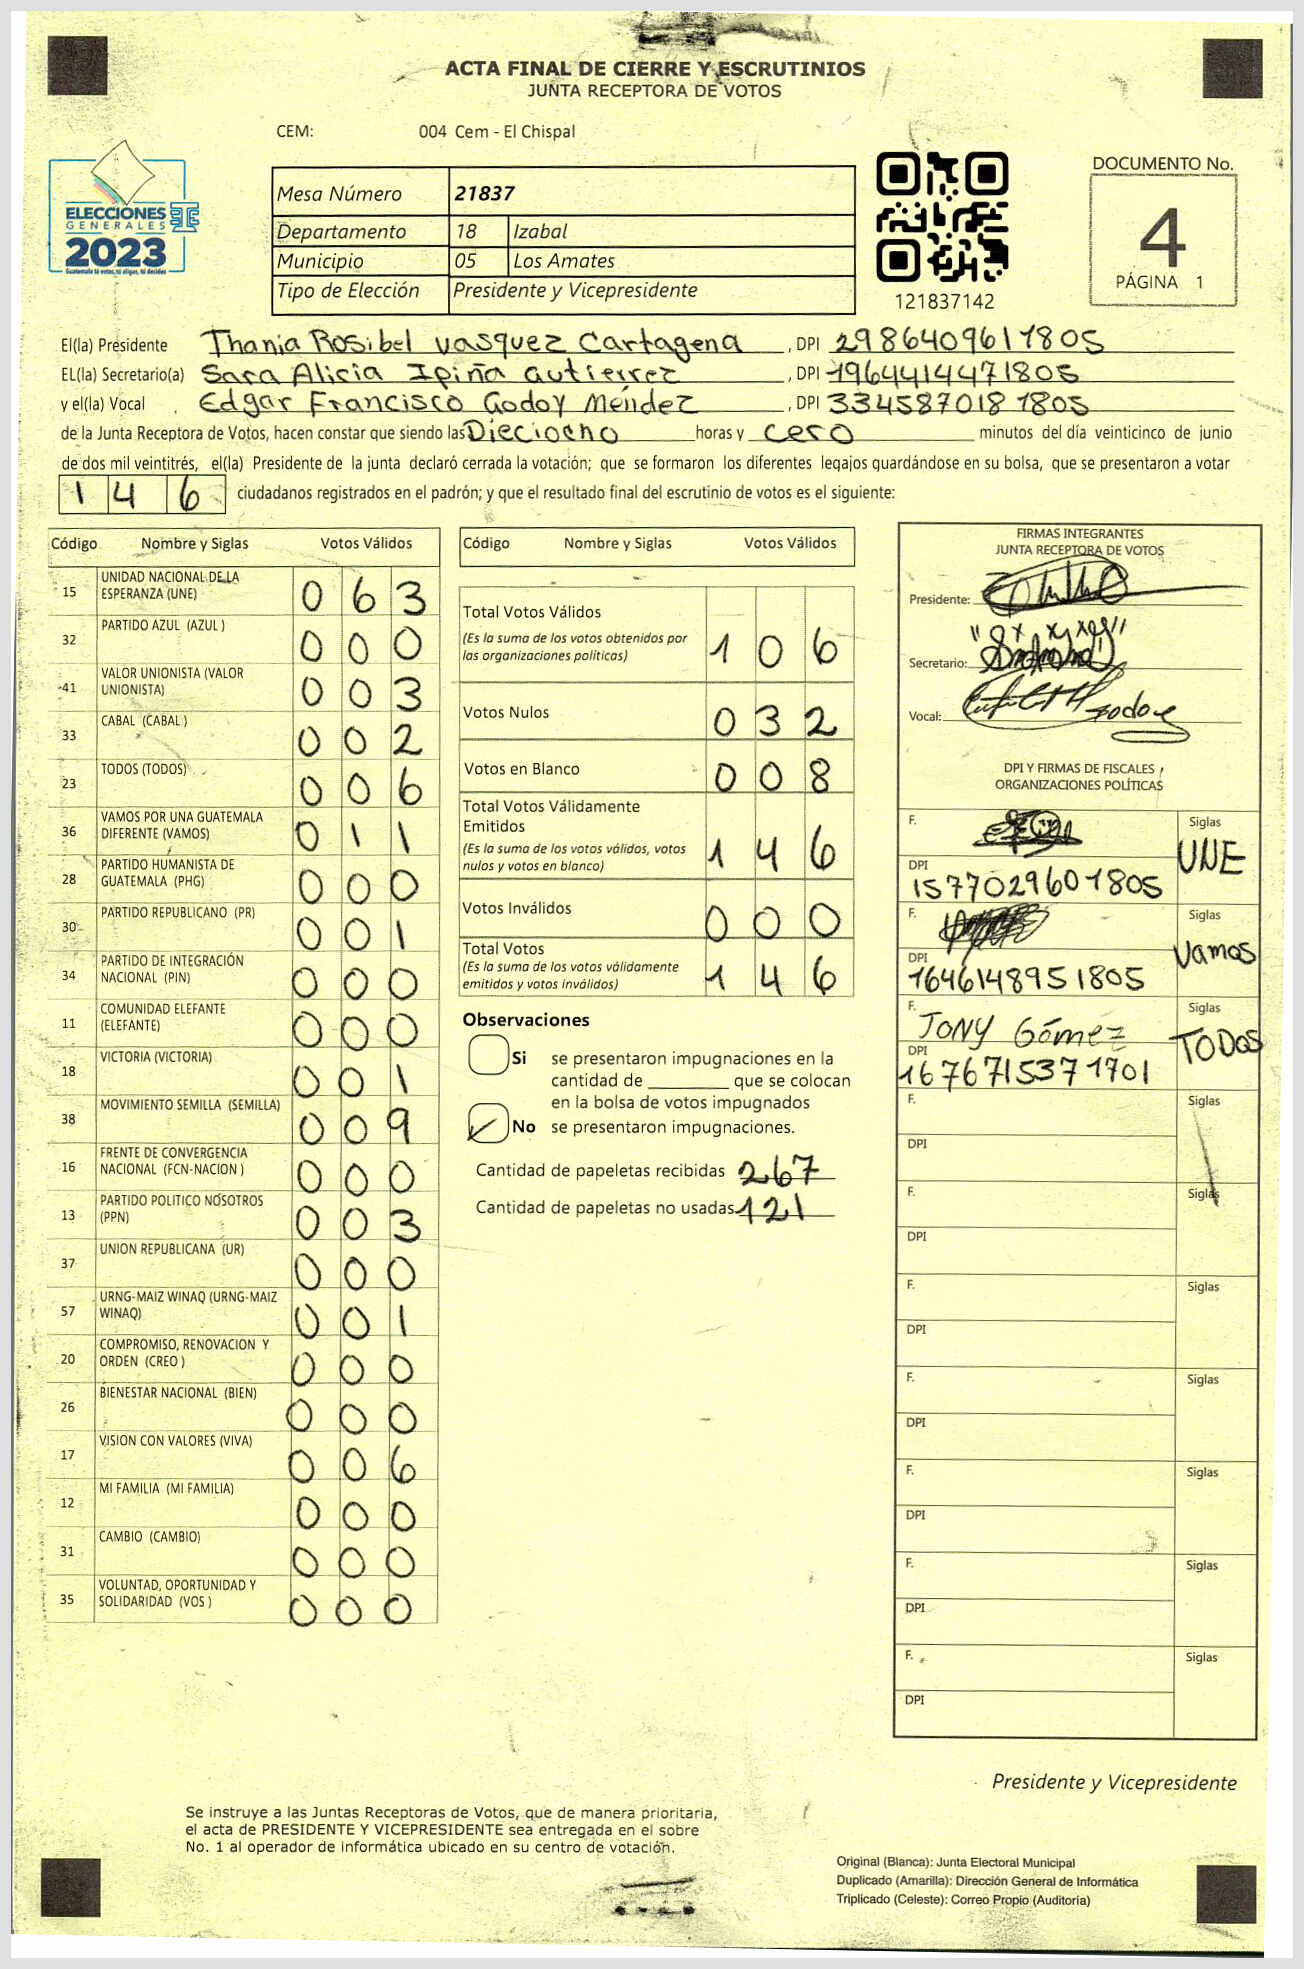 ACTA FINAL DE CIERRE Y ESCRUTINIOS
JUNTA RECEPTORA DE VOTOS
CEM: 004 Cem - El Chispal
ELECCIONES
GENERALES
2023
Guatemala tú votas, tú eliges, tú decides
Mesa Número 21837
Departamento 18 Izabal
Municipio 05 Los Amates
Tipo de Elección Presidente y Vicepresidente
121837142
DOCUMENTO No.
4
PÁGINA 1
El(la) Presidente Thania Rosibel Vasquez Cartagena, DPI 2986409611805
EL(la) Secretario(a) Sara Alicia Ipiña Gutierrez, DPI 1964414471805
y el(la) Vocal Edgar Francisco Godoy Méndez, DPI 3345870181805
de la Junta Receptora de Votos, hacen constar que siendo las Dieciocho horas y cero minutos del día veinticinco de junio
de dos mil veintitrés, el(la) Presidente de la junta declaró cerrada la votación; que se formaron los diferentes legajos guardándose en su bolsa, que se presentaron a votar
146 ciudadanos registrados en el padrón; y que el resultado final del escrutinio de votos es el siguiente:
Código Nombre y Siglas Votos Válidos
15 UNIDAD NACIONAL DE LA
ESPERANZA (UNE) 063
32 PARTIDO AZUL (AZUL ) 000
41 VALOR UNIONISTA (VALOR
UNIONISTA) 003
33 CABAL (CABAL ) 002
23 TODOS (TODOS) 006
36 VAMOS POR UNA GUATEMALA
DIFERENTE (VAMOS) 011
28 PARTIDO HUMANISTA DE
GUATEMALA (PHG) 000
30 PARTIDO REPUBLICANO (PR) 001
34 PARTIDO DE INTEGRACIÓN
NACIONAL (PIN) 000
11 COMUNIDAD ELEFANTE
(ELEFANTE) 000
18 VICTORIA (VICTORIA) 001
38 MOVIMIENTO SEMILLA (SEMILLA) 009
16 FRENTE DE CONVERGENCIA
NACIONAL (FCN-NACION ) 000
13 PARTIDO POLITICO NOSOTROS
(PPN) 003
37 UNION REPUBLICANA (UR) 000
57 URNG-MAIZ WINAQ (URNG-MAIZ
WINAQ) 001
20 COMPROMISO, RENOVACION Y
ORDEN (CREO ) 000
26 BIENESTAR NACIONAL (BIEN) 000
17 VISION CON VALORES (VIVA) 006
12 MI FAMILIA (MI FAMILIA) 000
31 CAMBIO (CAMBIO) 000
35 VOLUNTAD, OPORTUNIDAD Y
SOLIDARIDAD (VOS ) 000
Código Nombre y Siglas Votos Válidos
Total Votos Válidos
(Es la suma de los votos obtenidos por
las organizaciones políticas) 106
Votos Nulos 032
Votos en Blanco 008
Total Votos Válidamente
Emitidos
(Es la suma de los votos válidos, votos
nulos y votos en blanco) 146
Votos Inválidos 000
Total Votos
(Es la suma de los votos válidamente
emitidos y votos inválidos) 146
Observaciones
Si se presentaron impugnaciones en la
cantidad de ________ que se colocan
en la bolsa de votos impugnados
No se presentaron impugnaciones.
Cantidad de papeletas recibidas 267
Cantidad de papeletas no usadas 121
FIRMAS INTEGRANTES
JUNTA RECEPTORA DE VOTOS
Presidente:
Secretario:
Vocal:
DPI Y FIRMAS DE FISCALES
ORGANIZACIONES POLÍTICAS
F. Siglas
UNE
DPI
1577029601805
F. Siglas
Vamos
DPI
1646148951805
F. Siglas
JONY Gómez TODOS
DPI
1676715371701
F. Siglas
DPI
F. Siglas
DPI
F. Siglas
DPI
F. Siglas
DPI
F. Siglas
DPI
F. Siglas
DPI
F. Siglas
DPI
Presidente y Vicepresidente
Se instruye a las Juntas Receptoras de Votos, que de manera prioritaria,
el acta de PRESIDENTE Y VICEPRESIDENTE sea entregada en el sobre
No. 1 al operador de informática ubicado en su centro de votación.
Original (Blanca): Junta Electoral Municipal
Duplicado (Amarilla): Dirección General de Informática
Triplicado (Celeste): Correo Propio (Auditoría)